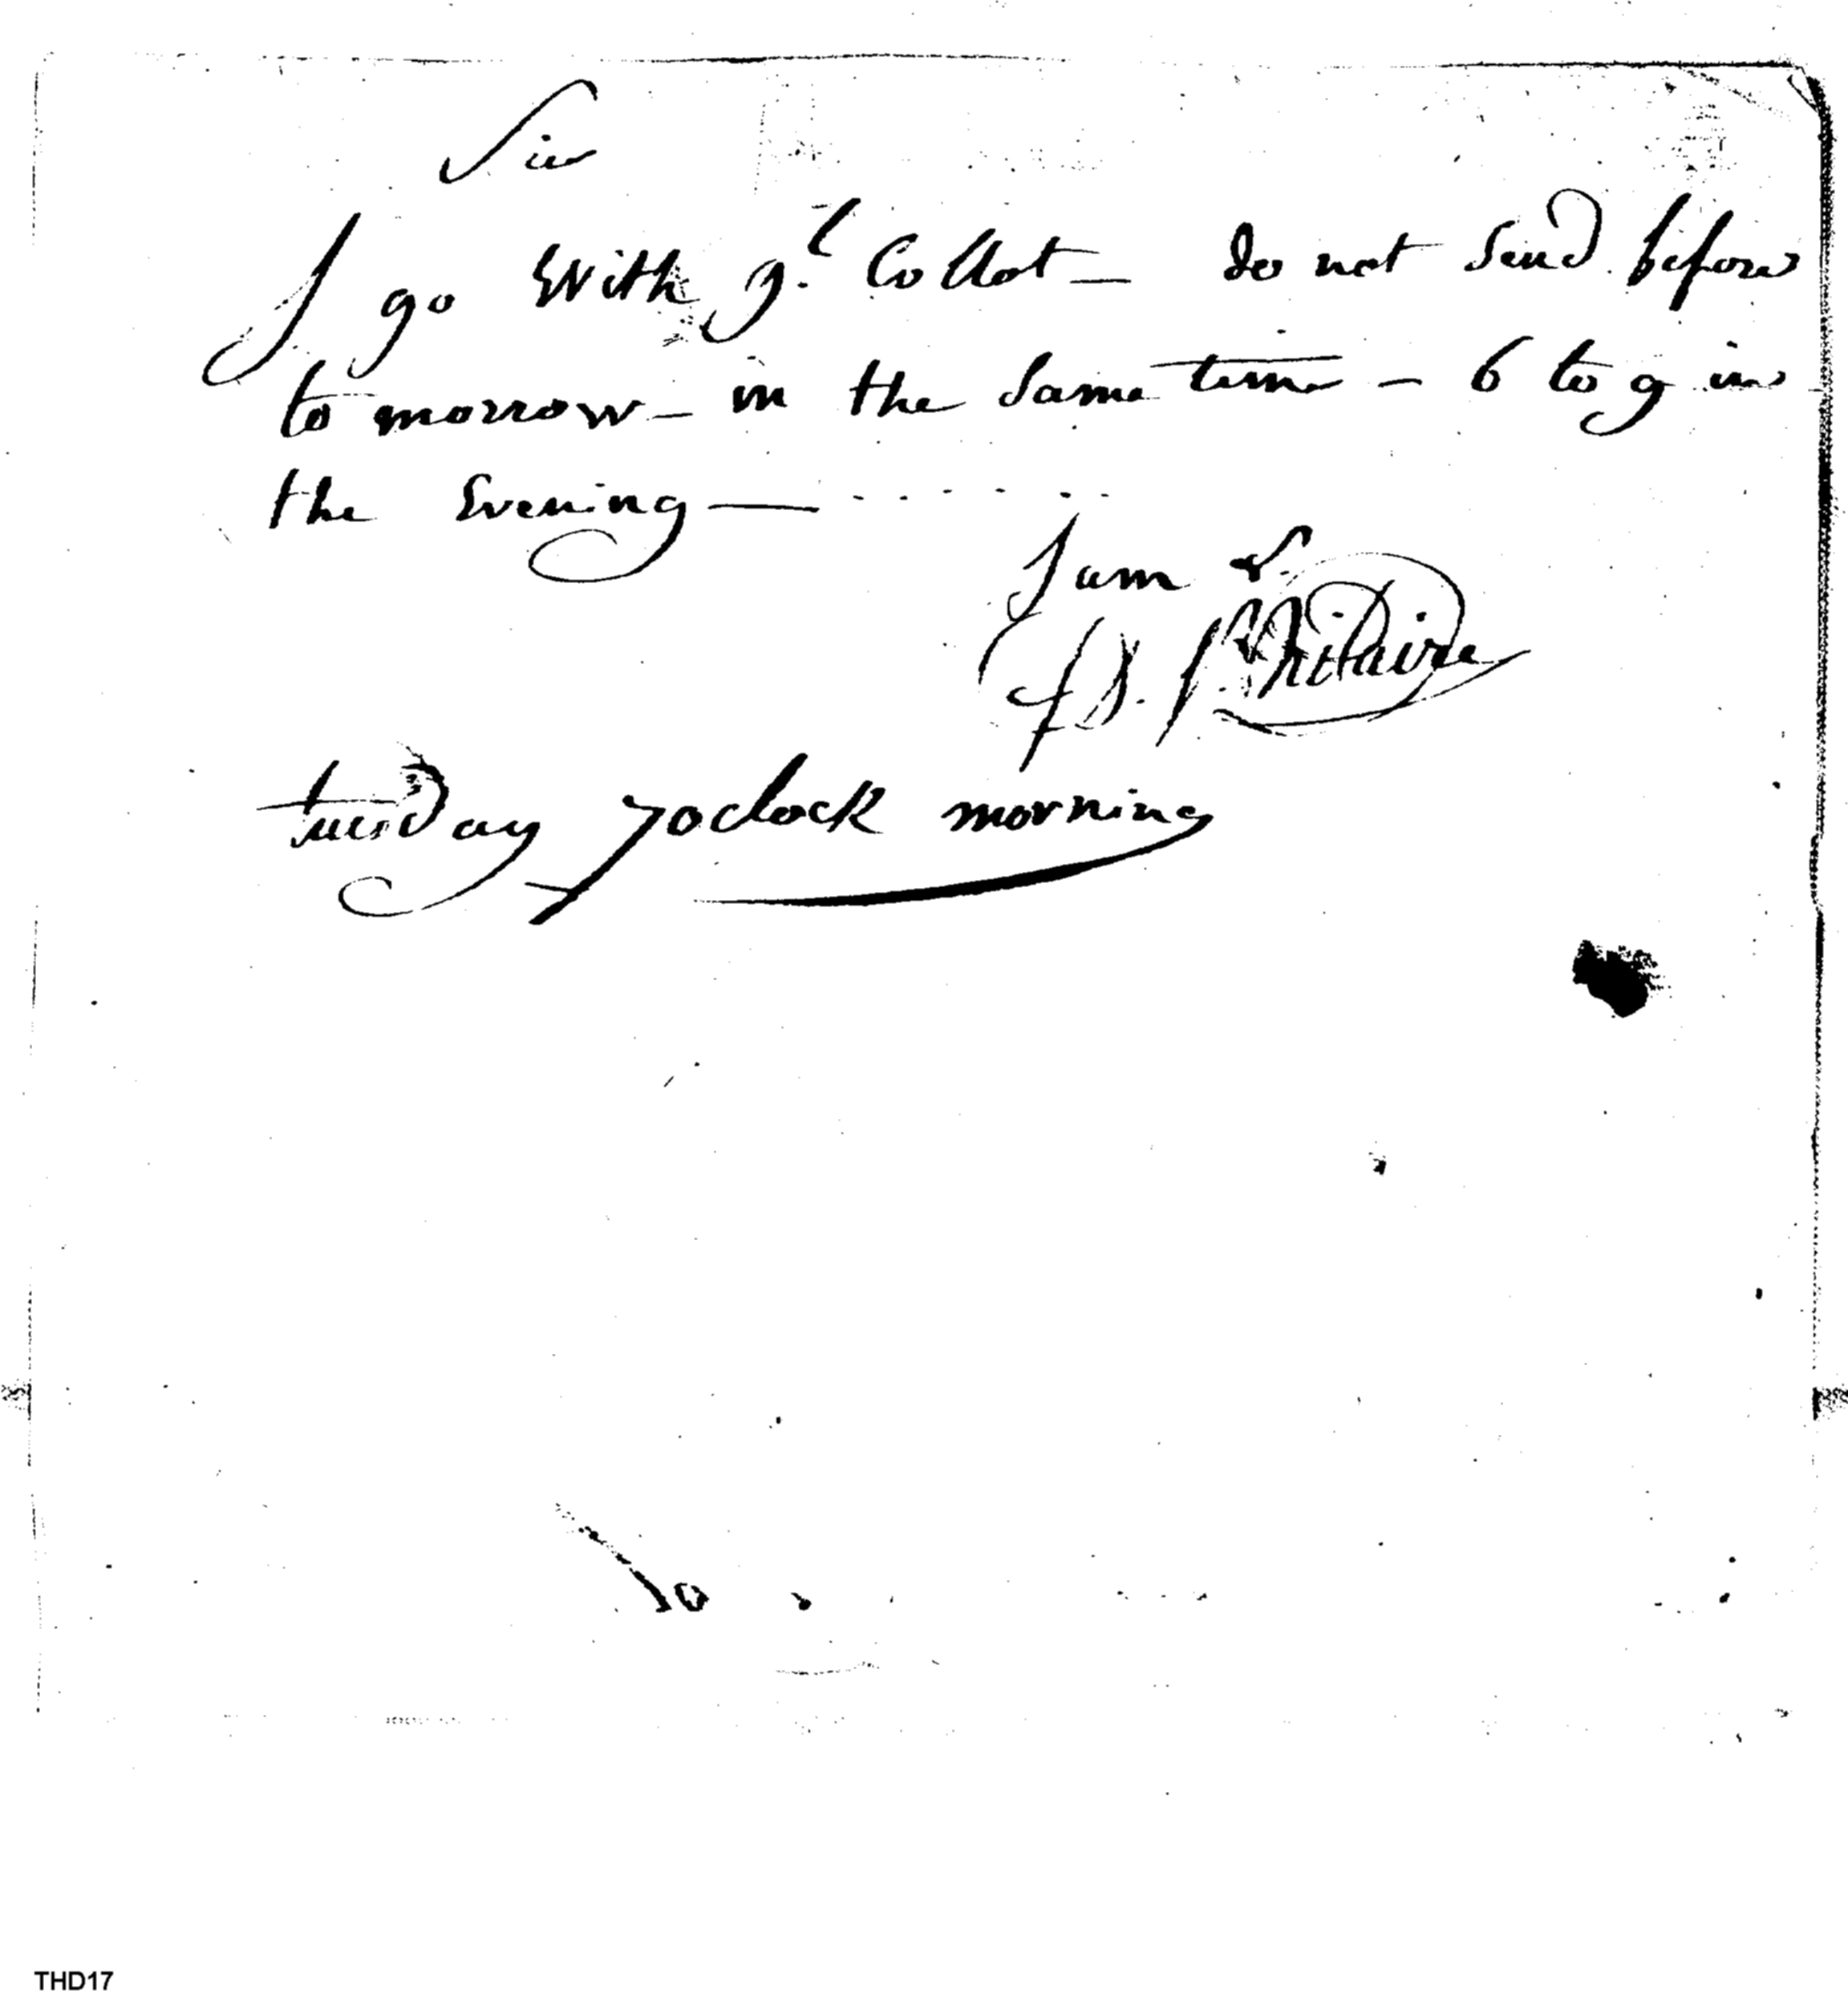 Sir
I go With g.l Collot — do not Send before
to morrow — in the Same time — 6 to 9 in
the Evening —
I am &.
St. hilaire
tuesday 7 oclock morning
THD17